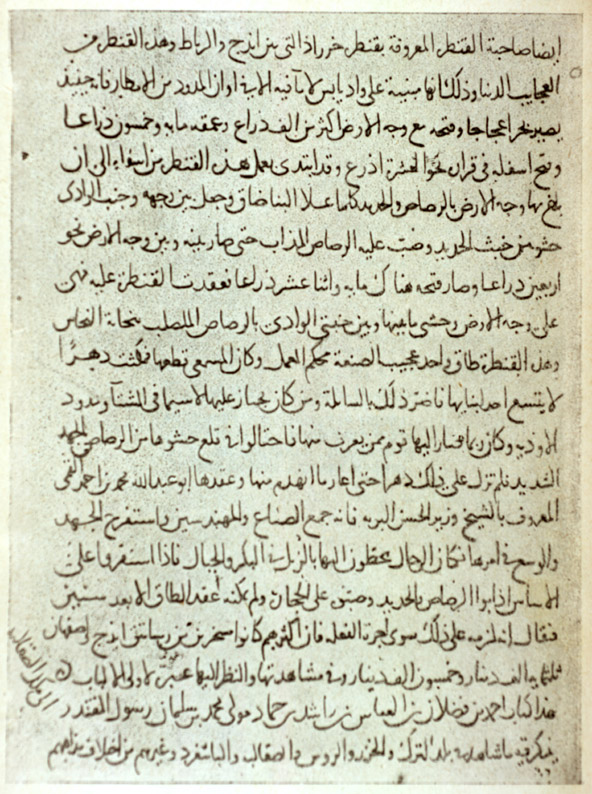 ايضا صاحبة القنطرة المعروفة بقنطرة خرزاذ التي بين ايذج والرباط وهذه القنطرة من
العجايب الدنيا وذلك انها مبنية على واد يابس لا مآ فيه الا في اوان المدود من الامطار فانه حينئذ
يصير بحرا عجاجا وفتحه مع وجه الارض اكثر من الف ذراع وعمقه مايه وخمسون ذراعا
وفتح اسفله في قراره نحو العشرة اذرع وقد ابتدى بعمل هذه القنطرة من اسفله الى ان
بلغ بها وجه الارض بالرصاص والحديد كلما علا البنا ضاق وجعل بين وجهه وجنب الوادي
حشو من خبث الحديد وصب عليه الرصاص المذاب حتى صار بينه وبين وجه الارض نحو
اربعين ذراعا وصار فتحه هناك مايه واثنا عشر ذراعا فعقدت القنطرة عليه فهى
على وجه الارض وحشى ما بينها وبين جنبتي الوادي بالرصاص المصلب بنحاتة النحاس
وهذه القنطرة طاق واحد عجيب الصنعة محكم العمل وكان المسمعي قطعها فمكثت دهرًا
لا يتسع احد لبنائها فاضر ذلك بالسابلة ومن كان يجتاز عليها لا سيما في الشتآ ومدود
الاوديه وكان ربما صار اليها قوم ممن يقرب منها فاحتالوا في قلع حشوها من الرصاص بالجهد
الشديد فلم تزل على ذلك دهرا حتى اعاد ما انهدم منها وعقدها ابو عبدالله محمد بن احمد القمي
المعروف بالشيخ وزير الحسن البويه فانه جمع الصناع والمهندسين واستفرغ الجهد
والوسع في امرها فكان الرجال يحطون اليها بالزبل في البكر والحبال فاذا استقروا على
الاساس اذابوا الرصاص بالحديد وصبوه على الحجارة ولم يمكنه عقد الطاق الا بعد سنتين
فيقال انه لزمه على ذلك سوى اجرة الفعله فان اكثرهم كانوا مسخرين من رساتيق ايذج واصفهان
ثلثماية الف دينار وخمسون الف دينار وفي مشاهدتها والنظر اليها عبرة لاولى الالباب
هذا كتاب احمد بن فضلان بن العباس بن راشد بن حماد مولى محمد بن سلمان رسول المقتدر
الى ملك الصقالبة
يذكر فيه ما شاهده في بلد الترك والخزر والروس والصقالبه والباشغرد وغيرهم من اختلاف مذاهبهم